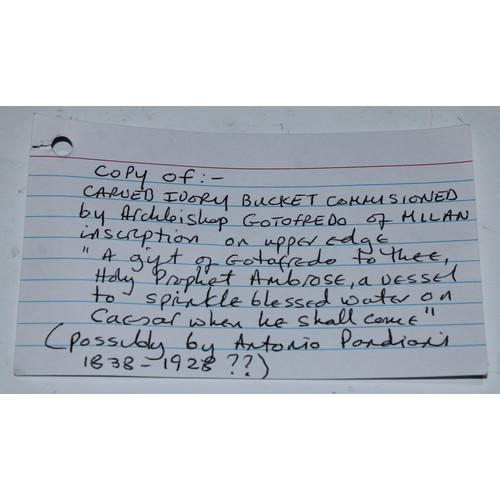 COPY OF:-
CARVED IVORY BUCKET COMMISIONED
by Archbishop GOTOFREDO of MILAN
inscription on upper edge
"A gift of Gotafredo to thee,
Holy Prophet Ambrose, a vessel
to sprinkle blessed water on
Caesar when he shall come"
(possibly by Antonio Pandiani
1838-1928 ??)